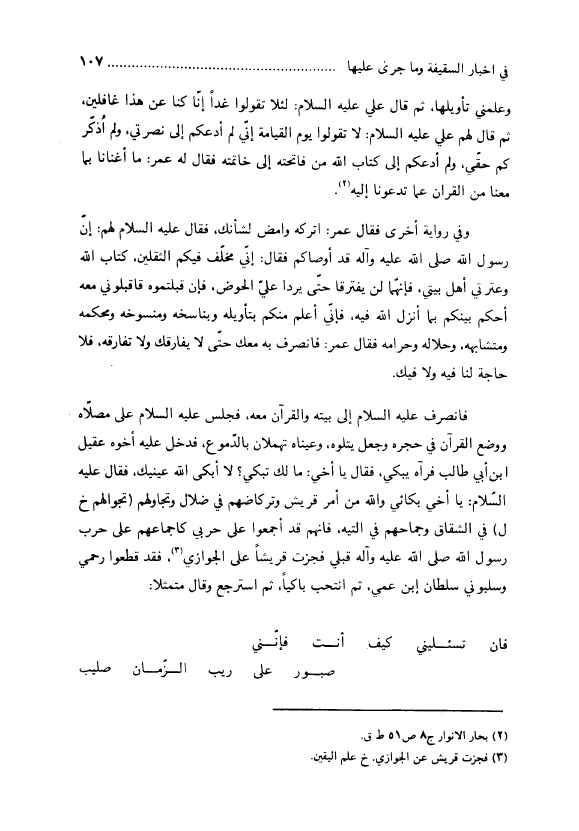 في اخبار السقيفة وما جرى عليها ........................................................ ١٠٧
وعلمني تأويلها، ثم قال علي عليه السلام: لئلا تقولوا غداً إنّا كنا عن هذا غافلين،
ثم قال لهم علي عليه السلام: لا تقولوا يوم القيامة إنّي لم أدعكم إلى نصرتي، ولم أُذكّر
كم حقّي، ولم أدعكم إلى كتاب الله من فاتحته إلى خاتمته فقال له عمر: ما أغنانا بما
معنا من القران عما تدعونا إليه(٢).
وفي رواية أخرى فقال عمر: اتركه وامض لشأنك، فقال عليه السلام لهم: إنّ
رسول الله صلى الله عليه وآله قد أوصاكم فقال: إنّي مخلّف فيكم الثقلين، كتاب الله
وعترتي أهل بيتي، فإنهّما لن يفترقا حتّى يردا عليّ الحوض، فإن قبلتموه فاقبلوني معه
أحكم بينكم بما أنزل الله فيه، فإنّي أعلم منكم بتأويله وبناسخه ومنسوخه ومحكمه
ومتشابهه، وحلاله وحرامه فقال عمر: فانصرف به معك حتّى لا يفارقك ولا تفارقه، فلا
حاجة لنا فيه ولا فيك.
فانصرف عليه السلام إلى بيته والقرآن معه، فجلس عليه السلام على مصلّاه
ووضع القرآن في حجره وجعل يتلوه، وعيناه تهملان بالدّموع، فدخل عليه أخوه عقيل
ابن أبي طالب فرآه يبكي، فقال يا أخي: ما لك تبكي؟ لا أبكى الله عينيك، فقال عليه
السّلام: يا أخي بكائي والله من أمر قريش وتركاضهم في ضلال وتجاولهم (تجوالهم خ
ل) في الشقاق وجماحهم في التيه، فانهم قد أجمعوا على حربي كاجماعهم على حرب
رسول الله صلى الله عليه وآله قبلي فجزت قريشاً على الجوازي(٣)، فقد قطعوا رحمي
وسلبوني سلطان إبن عمي، ثم انتحب باكياً، ثم استرجع وقال متمثلا:
فان تسئـليني كيف أنـت فإنّـني
صبـور على ريب الـزّمـان صليب
(٢) بحار الانوار ج٨ ص٥١ ط ق.
(٣) فجزت قريش عن الجوازي. خ علم اليقين.